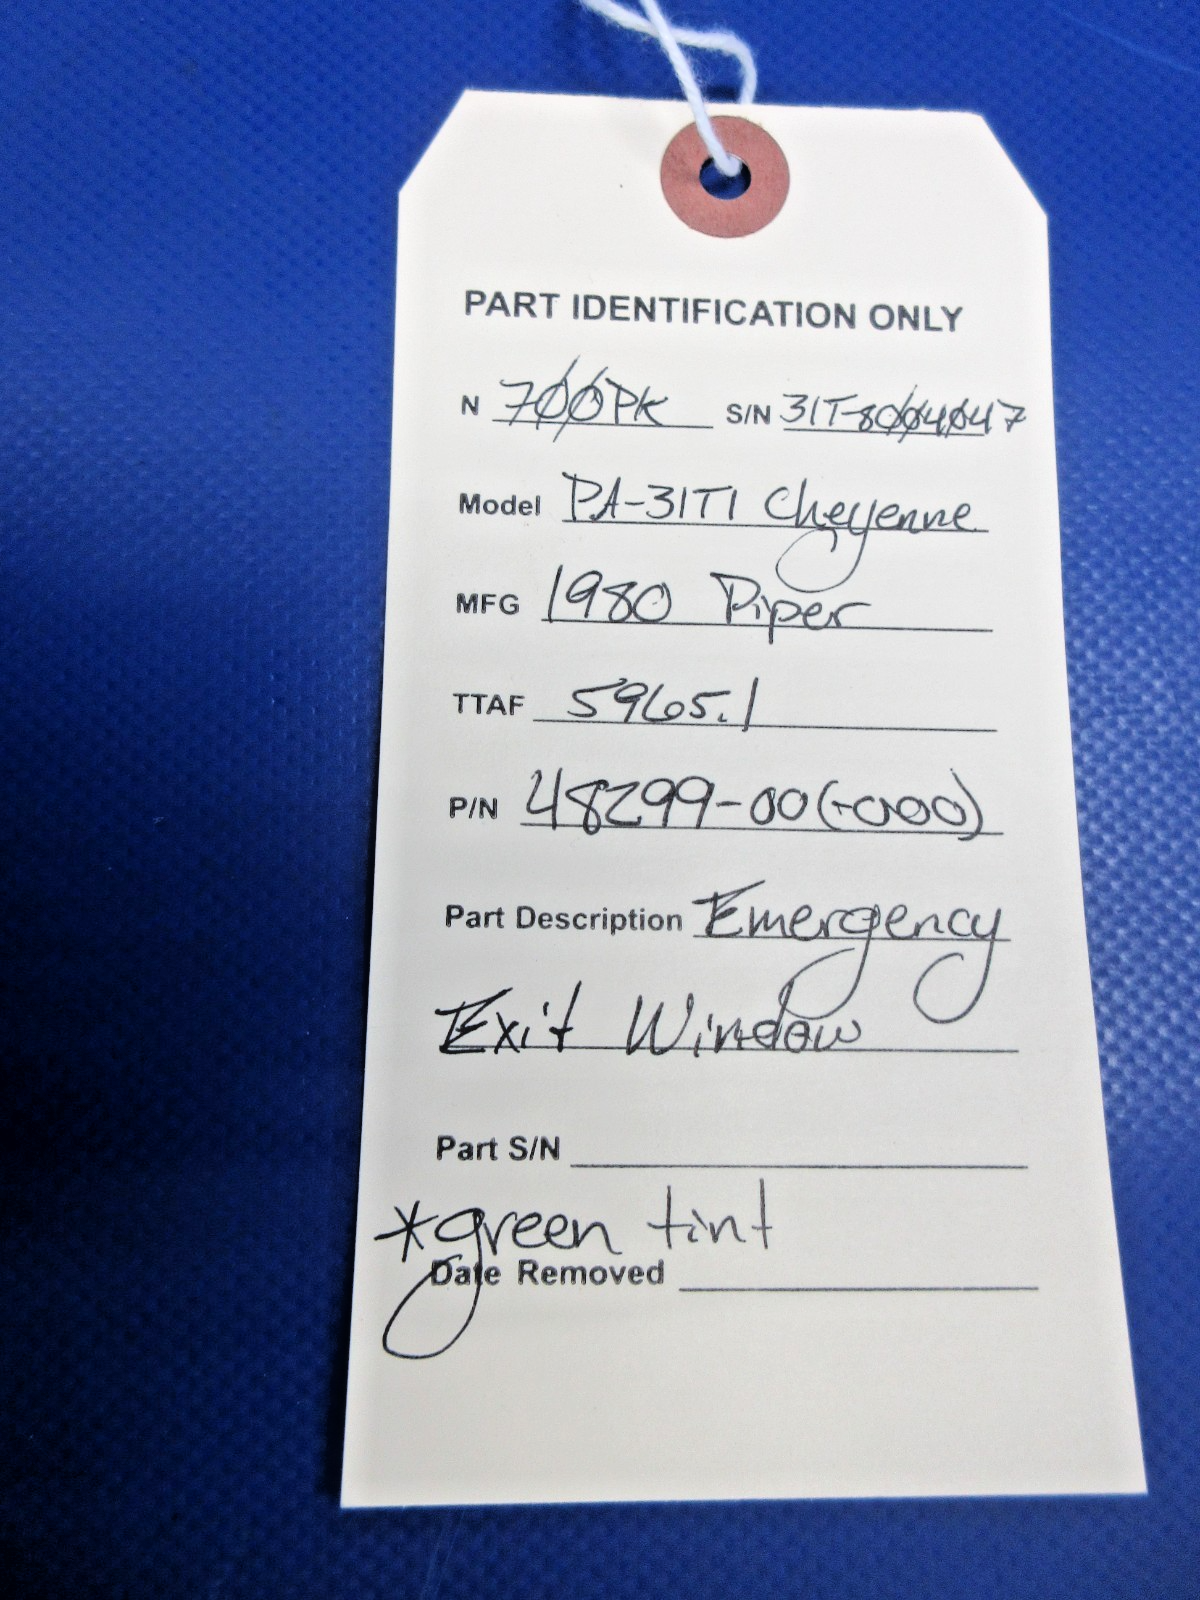 PART IDENTIFICATION ONLY
N 700PK S/N 31T-8004047
Model PA-31T1 Cheyenne
MFG 1980 Piper
TTAF 5965.1
P/N 48299-00(-000)
Part Description Emergency
Exit Window
Part S/N
*green tint
Date Removed